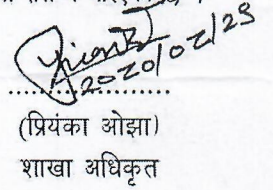 2020/02/25
(प्रियंका ओझा)
शाखा अधिकृत